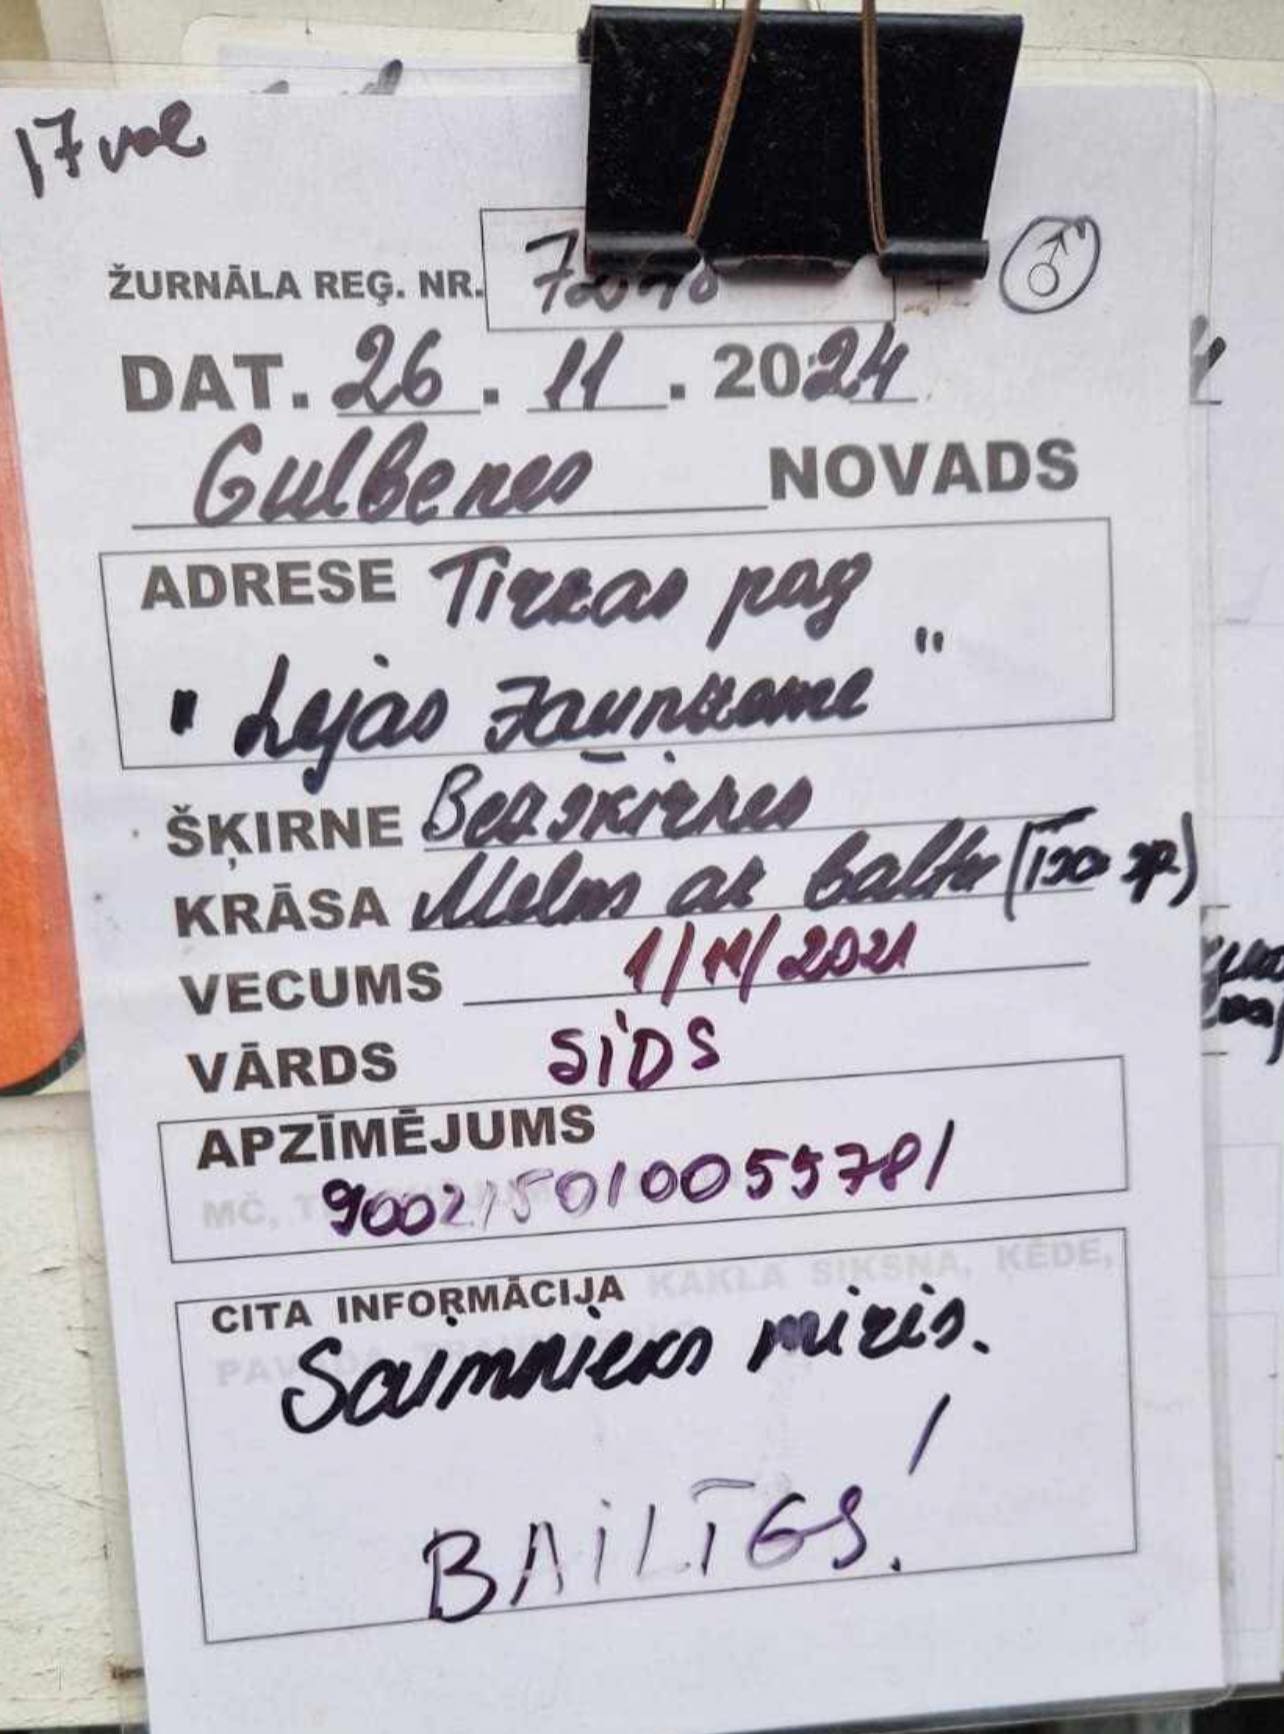 17 vol
ŽURNĀLA REĢ. NR.
DAT. 26. 11. 2024
Gulbenes NOVADS
ADRESE Tirzas pag
"Lejas
ŠĶIRNE Bezšķirnes
KRĀSA Melns ar baltu (īsa sp.)
VECUMS 1/11/2021
VĀRDS SiDS
APZĪMĒJUMS
MČ,
900215010055781
CITA INFORMĀCIJA KAKLA SIKSNA, ĶĒDE,
Saimnieks miris.
BAiLĪGS!